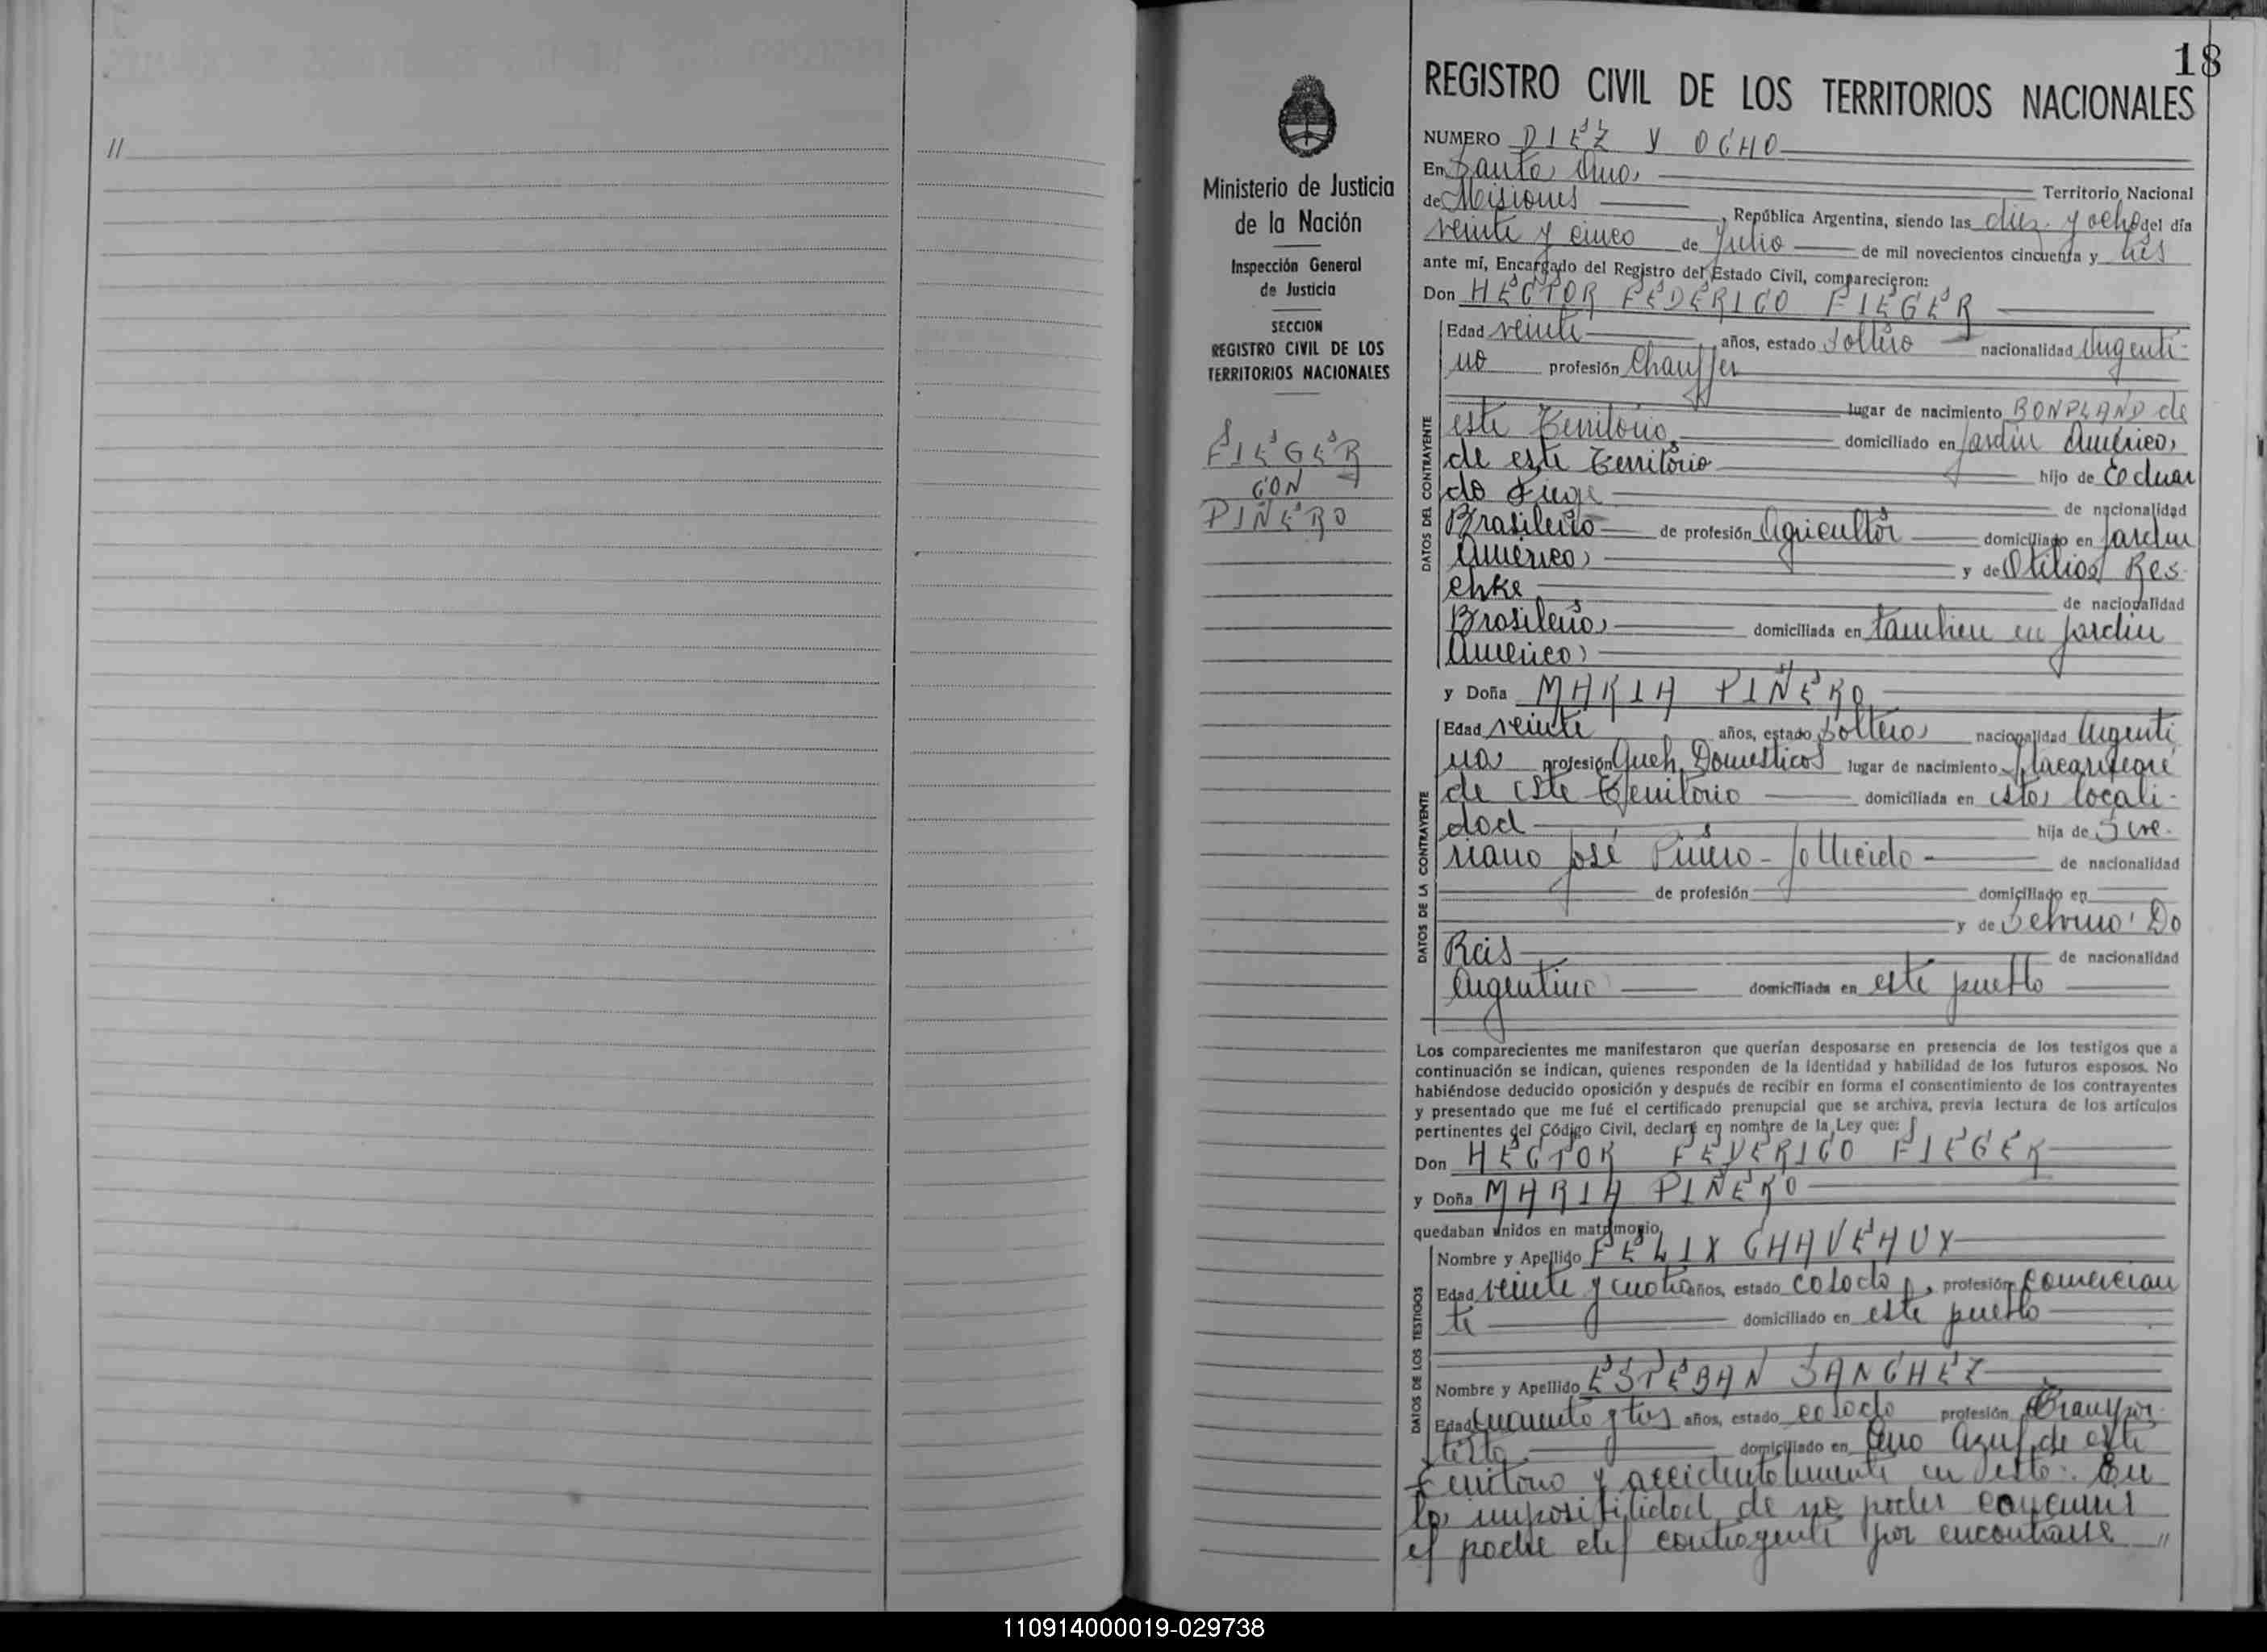 //
18
REGISTRO CIVIL DE LOS TERRITORIOS NACIONALES
Ministerio de Justicia
de la Nación
Inspección General
de Justicia
SECCION
REGISTRO CIVIL DE LOS
TERRITORIOS NACIONALES
FIEGER
CON
PIÑERO
NUMERO DIEZ Y OCHO
En Santa Ana Territorio Nacional
de Misiones, República Argentina, siendo las diez y ocho del día
veinte y cinco de Julio de mil novecientos cincuenta y tres
ante mí, Encargado del Registro del Estado Civil, comparecieron:
Don HECTOR FEDERICO FIEGER
DATOS DEL CONTRAYENTE
Edad veinte años, estado soltero nacionalidad Argenti-
no profesión Chauffer
lugar de nacimiento BONPLAND de
este Territorio domiciliado en Jardin America,
de este Territorio hijo de Eduar
do Fiege de nacionalidad
Brasileño de profesión Agricultor domiciliado en Jardin
America y de Otilia Res-
chke de nacionalidad
Brasileña domiciliada en tambien en Jardin
America
y Doña MARIA PIÑERO
DATOS DE LA CONTRAYENTE
Edad veinte años, estado Soltera nacionalidad Argenti
na profesión Queh. Domesticos lugar de nacimiento
de este Territorio domiciliada en esta locali-
dad hija de Seve-
riano José Piñero - fallecido - de nacionalidad
de profesión domiciliado en
y de Selvina Do
Reis de nacionalidad
Argentina domiciliada en este pueblo
Los comparecientes me manifestaron que querían desposarse en presencia de los testigos que a
continuación se indican, quienes responden de la identidad y habilidad de los futuros esposos. No
habiéndose deducido oposición y después de recibir en forma el consentimiento de los contrayentes
y presentado que me fué el certificado prenupcial que se archiva, previa lectura de los artículos
pertinentes del Código Civil, declaré en nombre de la Ley que:
Don HECTOR FEDERICO FIEGER
y Doña MARIA PIÑERO
quedaban unidos en matrimonio,
DATOS DE LOS TESTIGOS
Nombre y Apellido FELIX CHAVEAUX
Edad veinte y cuatro años, estado casado, profesión comercian
te domiciliado en este pueblo
Nombre y Apellido ESTEBAN SANCHEZ
Edad cuarenta y tres años, estado casado profesión Transpor-
tista domiciliado en Cerro Azul de este
Territorio y accidentalmente en esta. En
la imposibilidad de no poder concurrir
el padre del contrayente por encontrarse //
110914000019-029738